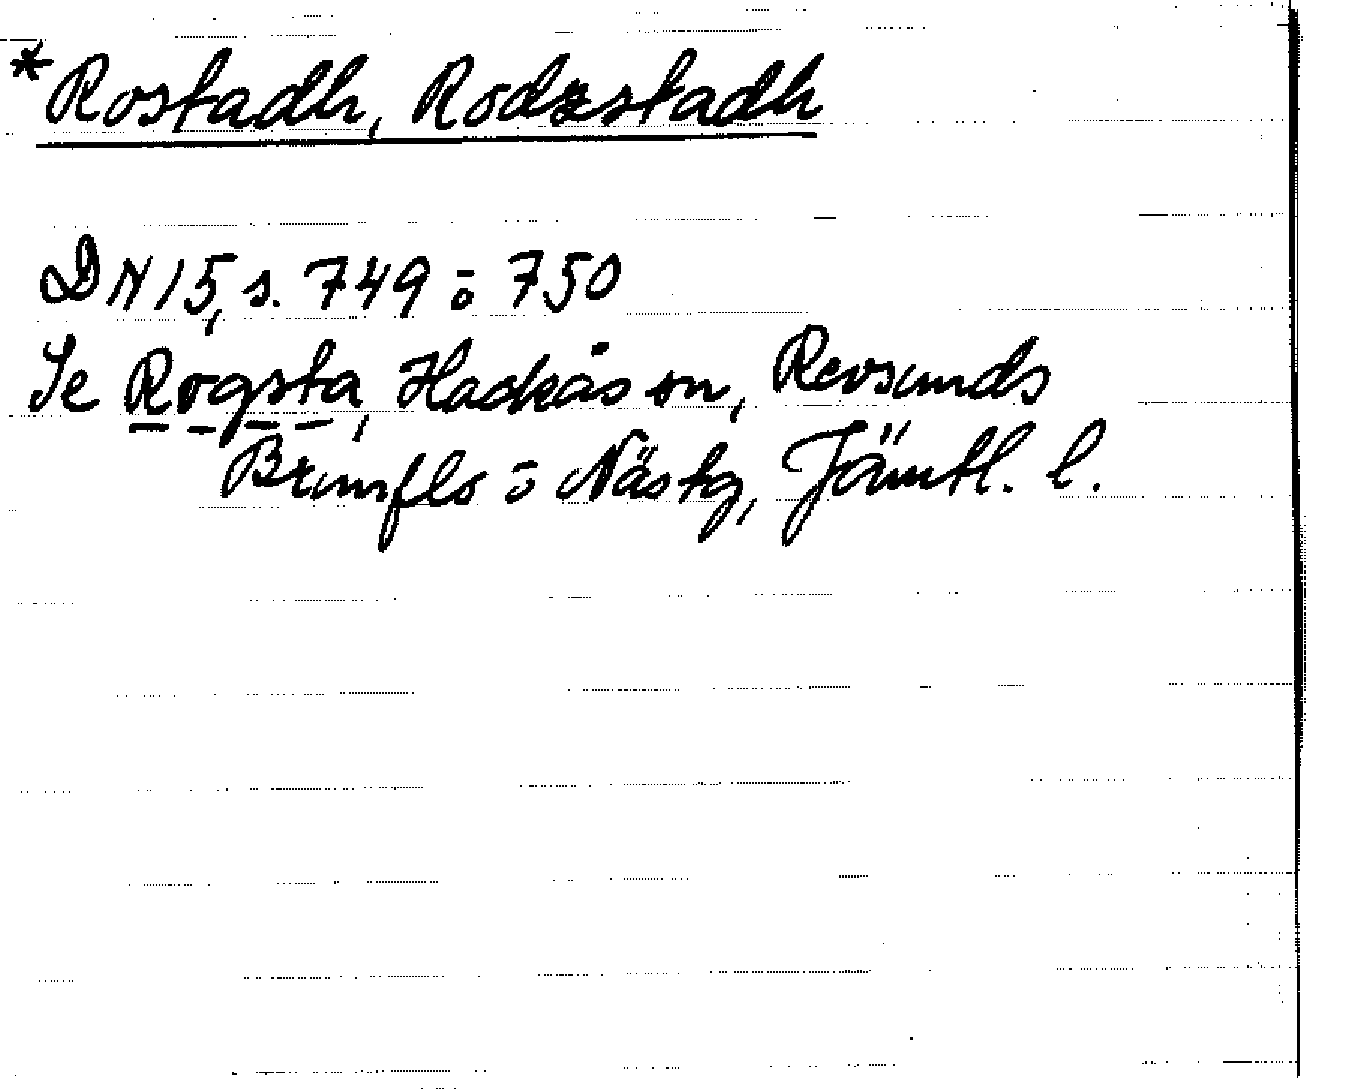 *Rostadh, Rodzstadh
DN 15, s. 749 o 750
Se Rogsta, Hackås sn, Revsunds
Brunflo o Näs tg, Jämtl. l.